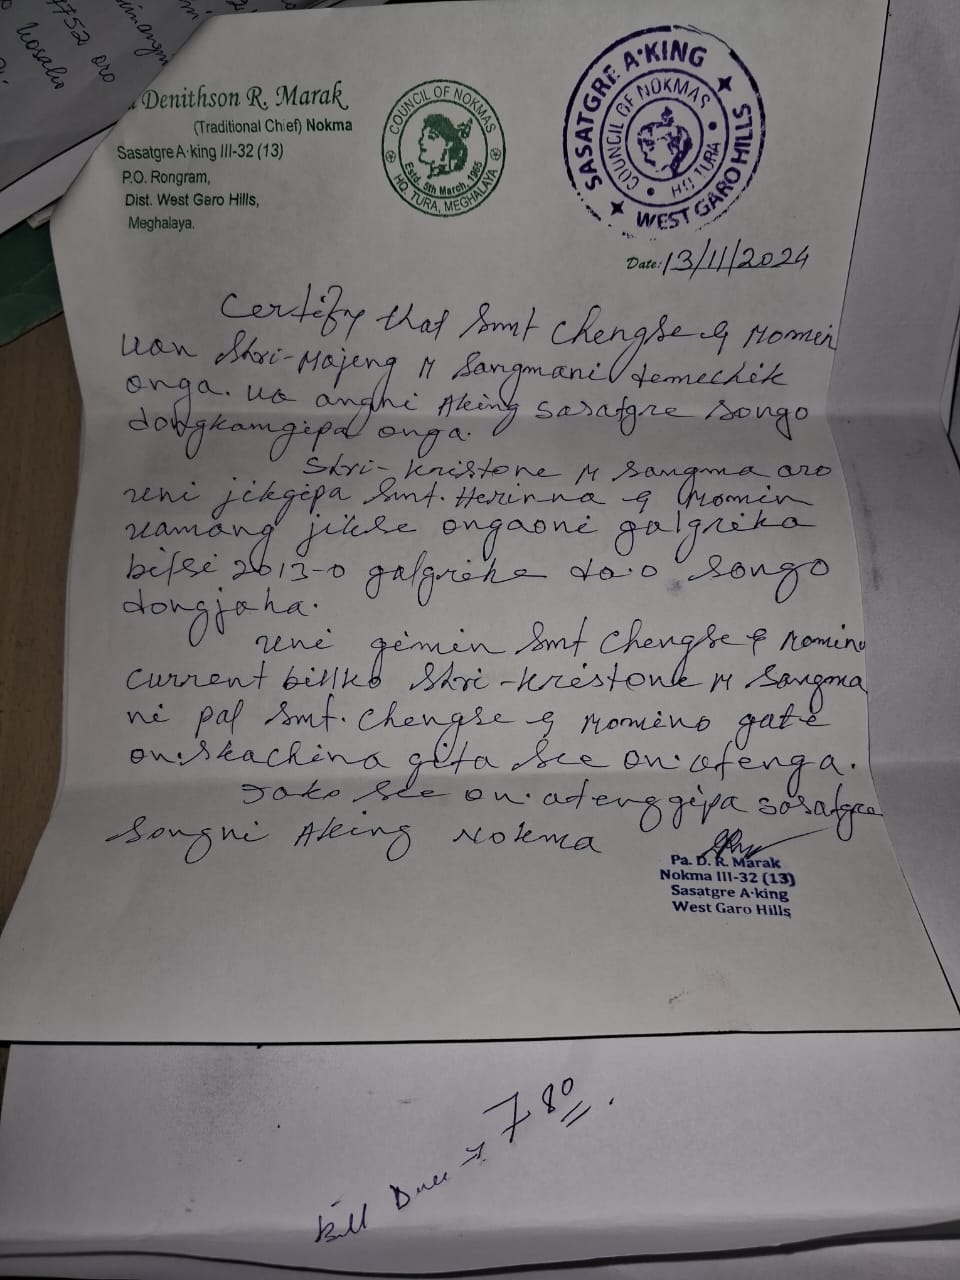 7752 oro
Denithson R. Marak
(Traditional Chief) Nokma
Sasatgre A·king III-32 (13)
P.O. Rongram,
Dist. West Garo Hills,
Meghalaya.
COUNCIL OF NOKMAS
Estd. 5th March, 1965
HQ. TURA, MEGHALAYA
SASATGRE A·KING
COUNCIL OF NOKMAS
HQ. TURA
WEST GARO HILLS
Date: 13/11/2024
Certify that Smt Chengse G Momin
uan Shri-Majeng M Sangmani demechik
onga. ua angni Aking sasatgre songo
dongkamgipa onga.
Shri-kristone M Sangma aro
uni jikgipa Smt. Herinna G Momin
uamang jikse ongaoni galgrika
bilsi 2013-o galgrike da·o songo
dongjaha.
uni gimin Smt Chengse G Momino
current billko Shri-kristone M Sangma
ni pal Smt. Chengse G Momino gate
on·skachina gita see on·atenga.
Jako see on·atenggipa sasatgre
songni Aking Nokma
Pa. D. R. Marak
Nokma III-32 (13)
Sasatgre A·king
West Garo Hills
Bill Due → 780